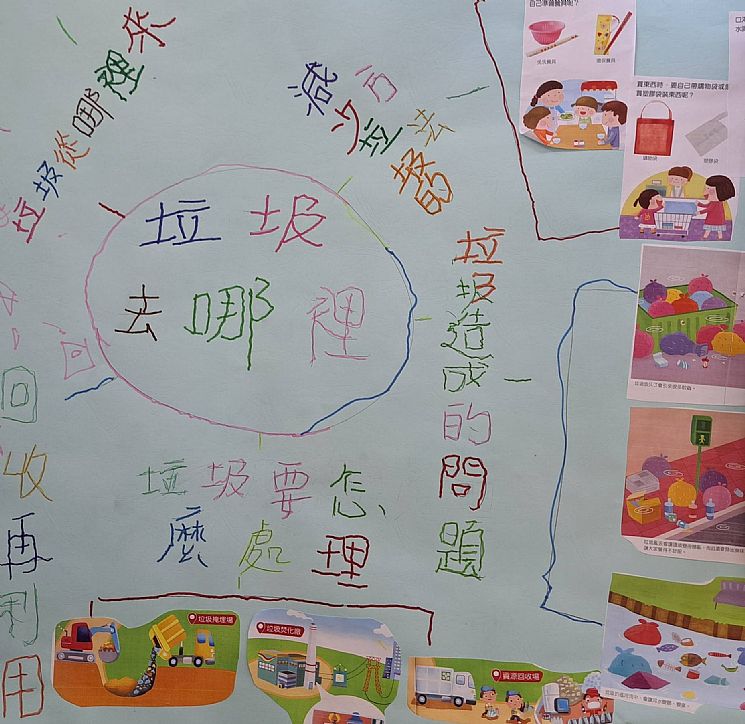 垃圾
去哪裡
垃圾從哪裡來
減少垃圾的方法
垃圾造成的問題
垃圾要怎
麼處理
回收再利用
垃圾掩埋場
垃圾焚化廠
資源回收場
買東西時，要自己帶購物袋或
購物袋
塑膠袋
免洗餐具
環保餐具
自己準備餐具呢？